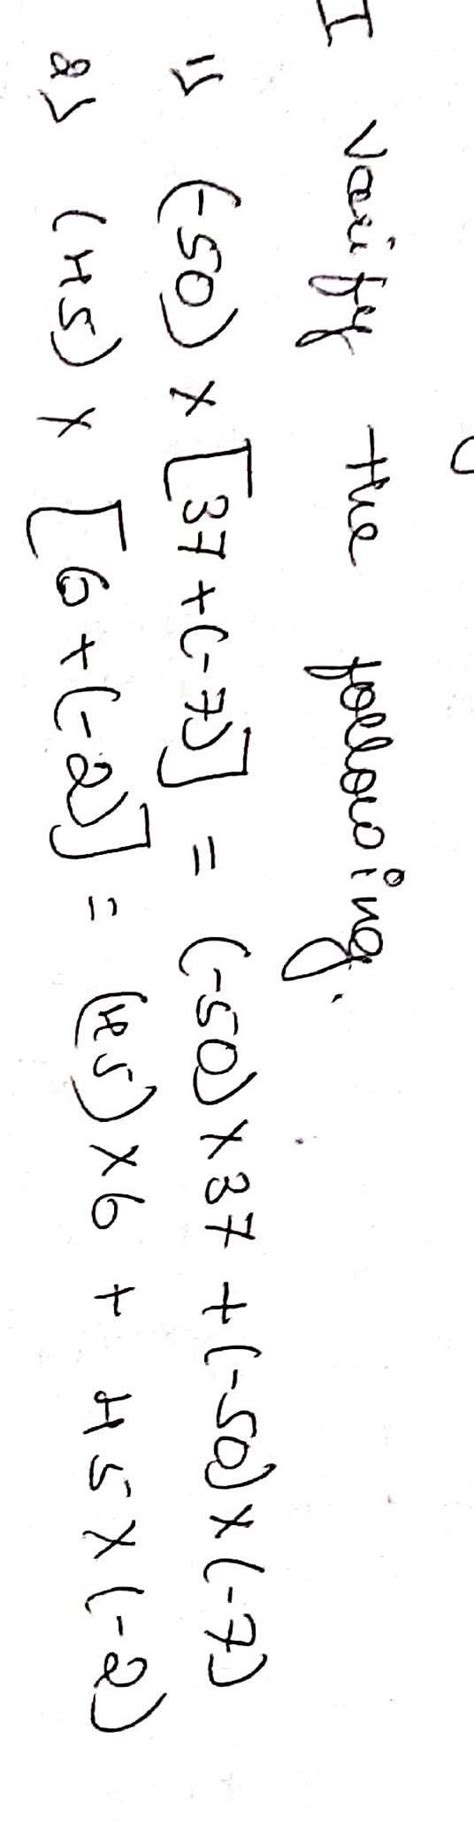 I varify the following.
1) (-50) × [37 + (-7)] = (-50) × 37 + (-50) × (-7)
2) (45) × [6 + (-2)] = (45) × 6 + 45 × (-2)